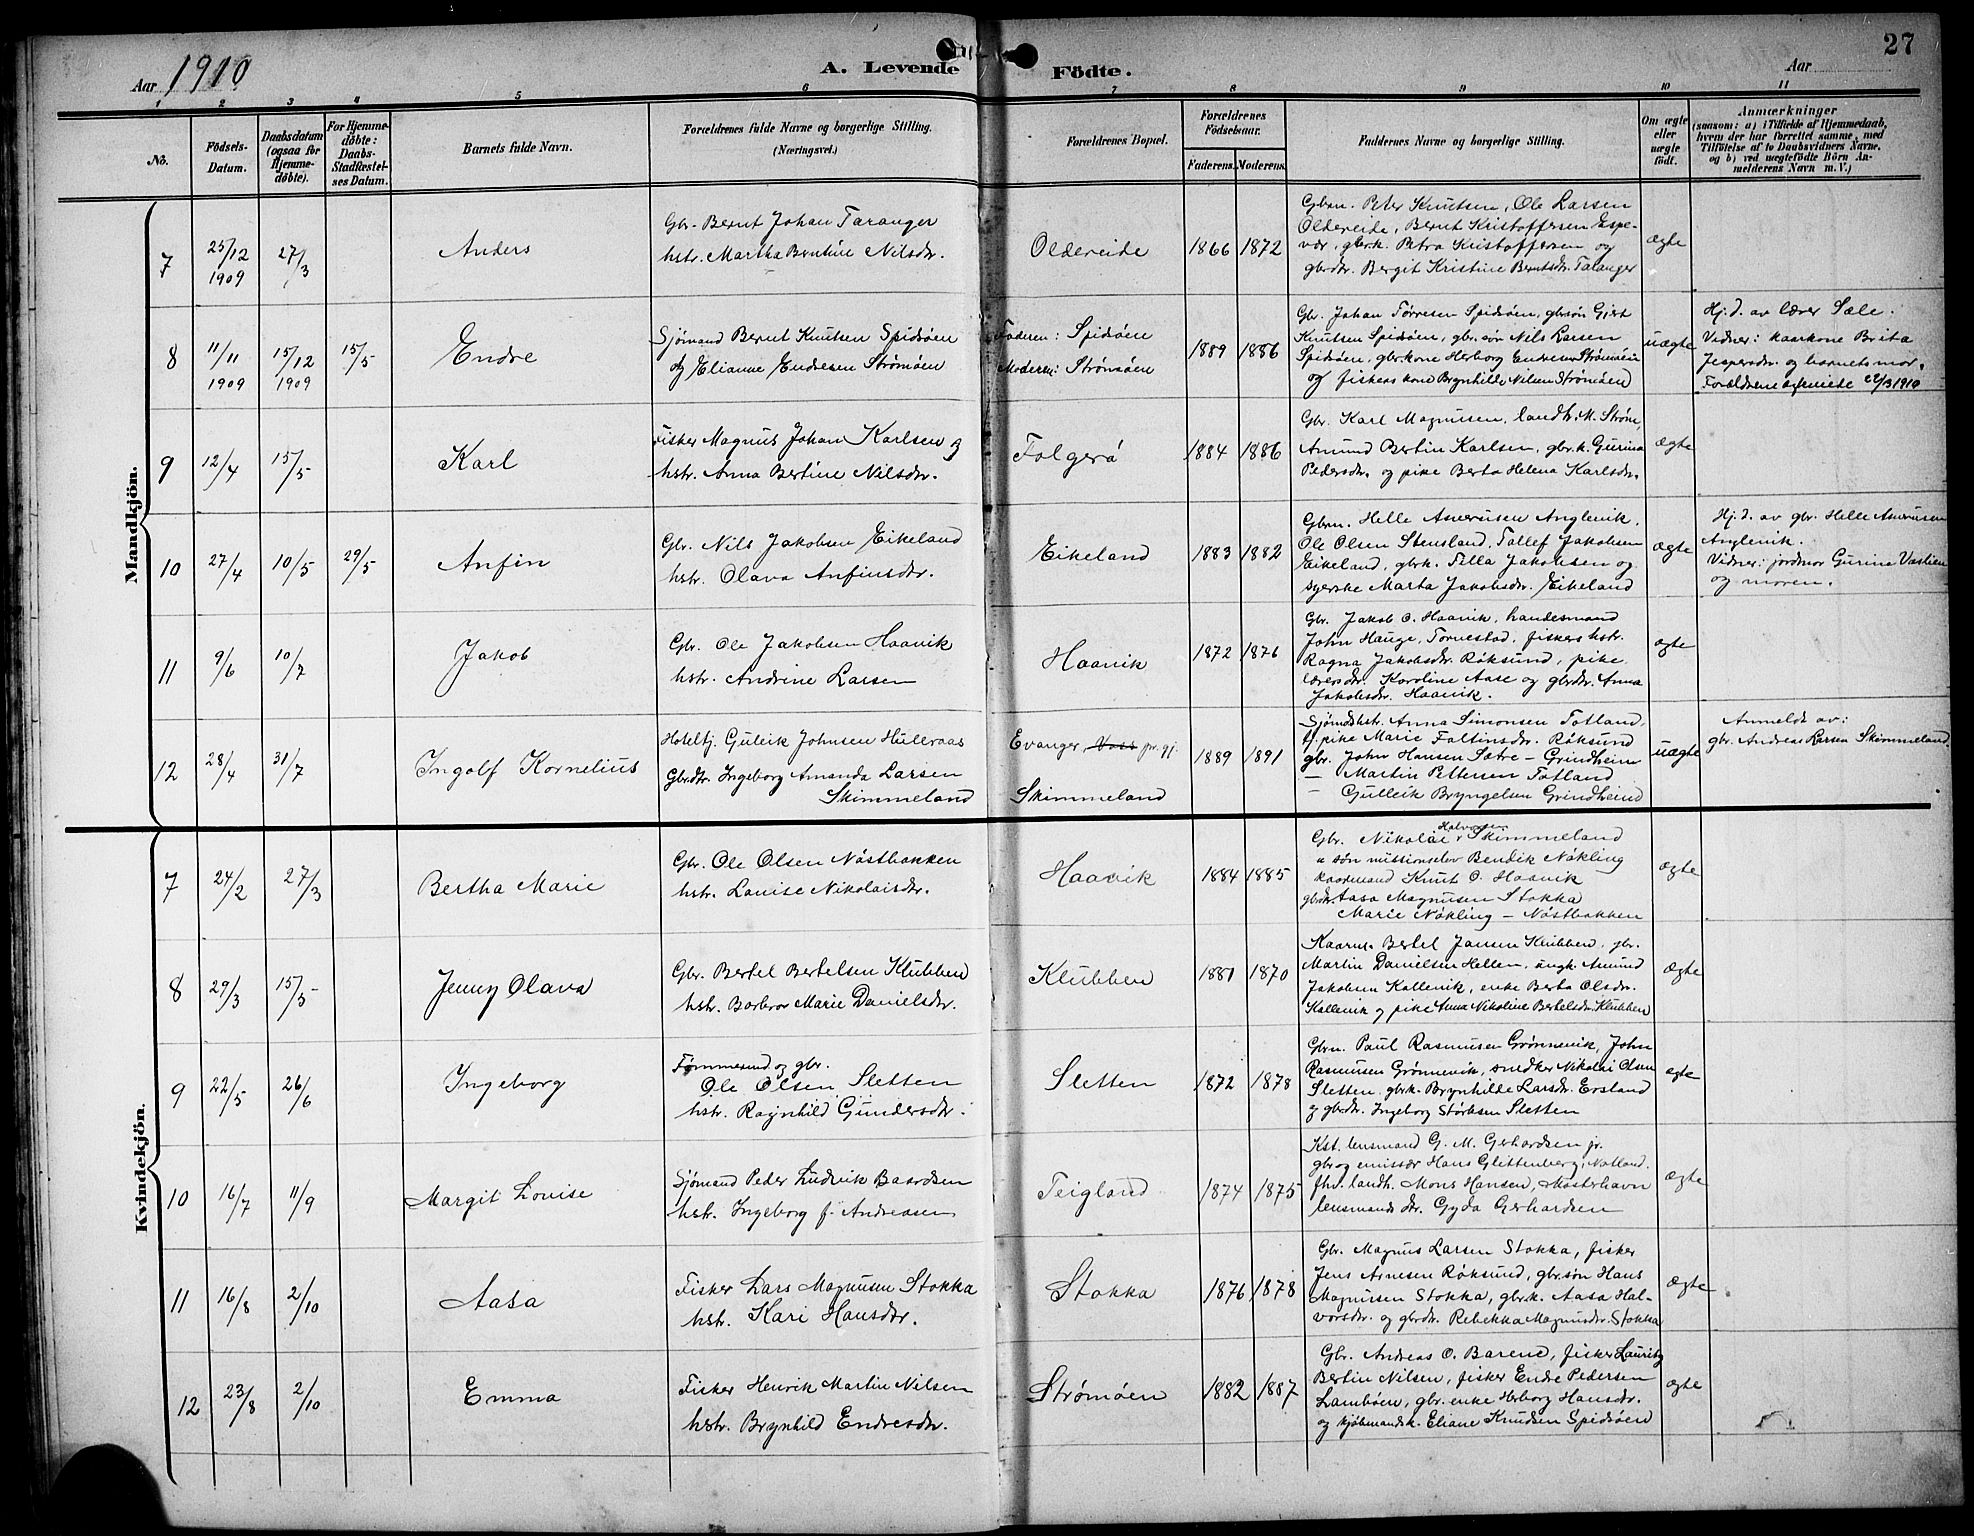 27
Aar 1910
A. Levende Födte.
Aar
1 2 3 4 5 6 7 8 9 10 11
No.
Födsels-Datum.
Daabsdatum (ogsaa for Hjemme-döbte).
For Hjemme-döbte: Daabs-Stadfæstel-ses Datum.
Barnets fulde Navn.
Forældrenes fulde Navne og borgerlige Stilling.
(Næringsvei.)
Forældrenes Bopæl.
Forældrenes Födselsaar.
Faderens. Moderens.
Faddernes Navne og borgerlige Stilling.
Om ægte eller uægte födt.
Anmærkninger
(saasom: a) i Tilfælde af Hjemmedaab,
hvem der har forrettet samme, med
Tilföielse af to Daabsvidners Navne,
og b) ved uægtefödte Börn An-
melderens Navn m. V.)
Mandkjön.
7
25/12 1909
27/3
Anders
Gbr. Bernt Johan Taranger
hstr. Martha Bentine Nilsdr.
Oldereide
1866 1872
Gbrn. Peter Knutsen, Ole Larsen
Oldereide, Bernt Kristoffersen Espe-
vær, gbrk. Petra Kristoffersen og
gbrdtr. Bergit Kristine Berntsdr. Taranger
ægte
8
11/11 1909
15/12 1909
15/5
Endre
Sjømand Bernt Knutsen Spidsøen
og Elianne Endresen Strømøen
Faderen: Spidsøen
Moderen: Strømsøen
1889 1886
Gbr. Johan Tørresen Spidsøen, gbrsøn Gjert
Knutsen Spidsøen, gbr. søn Nils Larsen
Spidsøen, gbr. kone Herborg Endresen Strømøen
og fiskers kone Brynhilde Nilsen Strømøen
uægte
Hj.d. av lærer Sæle.
Vidner: kaarkone Brita
Jespersdr. og barnets mor.
Forældrene egteviede 22/3 1910
9
12/4
15/5
Karl
Fisker Magnus Johan Karlsen og
hstr. Anna Bertine Nilsdr.
Folgerø
1884 1886
Gbr. Karl Magnusen, landh. M. Strøm,
Amund Bertin Karlsen, gbr.k. Gurina
Pedersdr. og pike Berta Helena Karlsdr.
ægte
10
27/4
10/5
29/5
Anfin
Gbr. Nils Jakobsen Eikeland
hstr. Olava Anfinsdr.
Eikeland
1883 1882
Gbrn. Helle Asmusen Anglevik,
Ole Olsen Stensland, Tallef Jakobsen
Eikeland, gbrk. Tilla Jakobsen og
syerske Marta Jakobsdr. Eikeland
ægte
Hj.d. av gbr. Helle Asmusen
Anglevik.
Vidner: jordmor Gurina Vastien
og moren.
11
9/6
10/7
Jakob
Gbr. Ole Jakobsen Haavik
hstr. Andrine Larsen
Haavik
1872 1876
Gbr. Jakob O. Haavik, handesmand
John Hauge, Tornestad, fiskers hstr.
Ragna Jakobsdr. Røksund, pike
lærersdr. Karoline Aase og gbrdtr. Anna
Jakobsdr. Haavik.
ægte
12
28/4
31/7
Ingolf Kornelius
Hoteltj. Guleik Johnsen Hulleraas
Gbrdtr. Ingeborg Amanda Larsen
Skimmeland
Evanger, Voss pr. gj.
Skimmeland
1889 1891
Sjømdshstr. Anna Simonsen Totland,
tj. pike Marie Faltinsdr. Røksund
gbr. John Hansen Sætre – Grindheim
– Martin Pettersen Totland
– Gulleik Bryngelsen Grindheim
uægte
Anmeldt av:
gbr. Andreas Larsen Skimmeland.
Kvindekjön.
7
24/2
27/3
Bertha Marie
Gbr. Ole Olsen Nøstbakken
hstr. Louise Nikolaisdr.
Haavik
1884 1885
Halvorsen
Gbr. Nikolai Skimmeland
" søn missionselev Bendik Nøkling
kaarmand Knut O. Haavik
gbrdtr. Aasa Magnusen Stokka
Marie Nøkling – Nøstbakken
ægte
8
29/3
15/5
Jenny Olava
Gbr. Bertel Bertelsen Klubben
hstr. Barbroe Marie Danielsdr.
Klubben
1881 1870
Kaarm. Bertel Jansen Klubben, gbr.
Martin Danielsen Hellen, ungk. Amund
Jakobsen Kallevik, enke Berta Olsdr.
Kallevik og pike Anna Nikoline Bertelsdr. Klubben
ægte
9
22/5
26/6
Ingeborg
Tømmermd og gbr.
Ole Olsen Sletten
hstr. Ragnhild Gundersdtr.
Sletten
1872 1878
Gbrn. Paul Rasmusen Grønnevik, John
Rasmusen Grønnevik, snedker Nikolai Olsen
Sletten, gbrk. Brynhilde Larsdr. Ersland
og gbrdtr. Ingeborg Størksen Sletten
ægte
10
16/7
11/9
Margit Lovise
Sjømand Peder Ludvik Baardsen
hstr. Ingeborg f. Andreasen
Teigland
1874 1875
Kst. lensmand G. M. Gerhardsen jr.
gbr og emissær Hans Glittenberg, Notland.
fhv. landh. Mons Hansen, Mosterhavn
lensmands dr. Gyda Gerhardsen
ægte
11
16/8
2/10
Aasa
Fisker Lars Magnusen Stokka
hstr. Kari Hansdtr.
Stokka
1876 1878
Gbr. Magnus Larsen Stokka, fisker
Jens Arnesen Røksund, gbr. søn Hans
Magnusen Stokka, gbr.k. Aasa Hal-
vorsdr. og gbrdtr. Rebekka Magnusdr. Stokka
ægte
12
23/8
2/10
Emma
Fisker Henrik Martin Nilsen
hstr. Brynhild Endresdtr.
Strømøen
1882 1887
Gbr. Andreas O. Barene, fisker Lauritz
Bertin Nilsen, fisker Endre Pedersen
Lambøen, gbr. enke Herborg Hansdr.
og sjømandsk. Eliane Knudsen Spidsøen
ægte